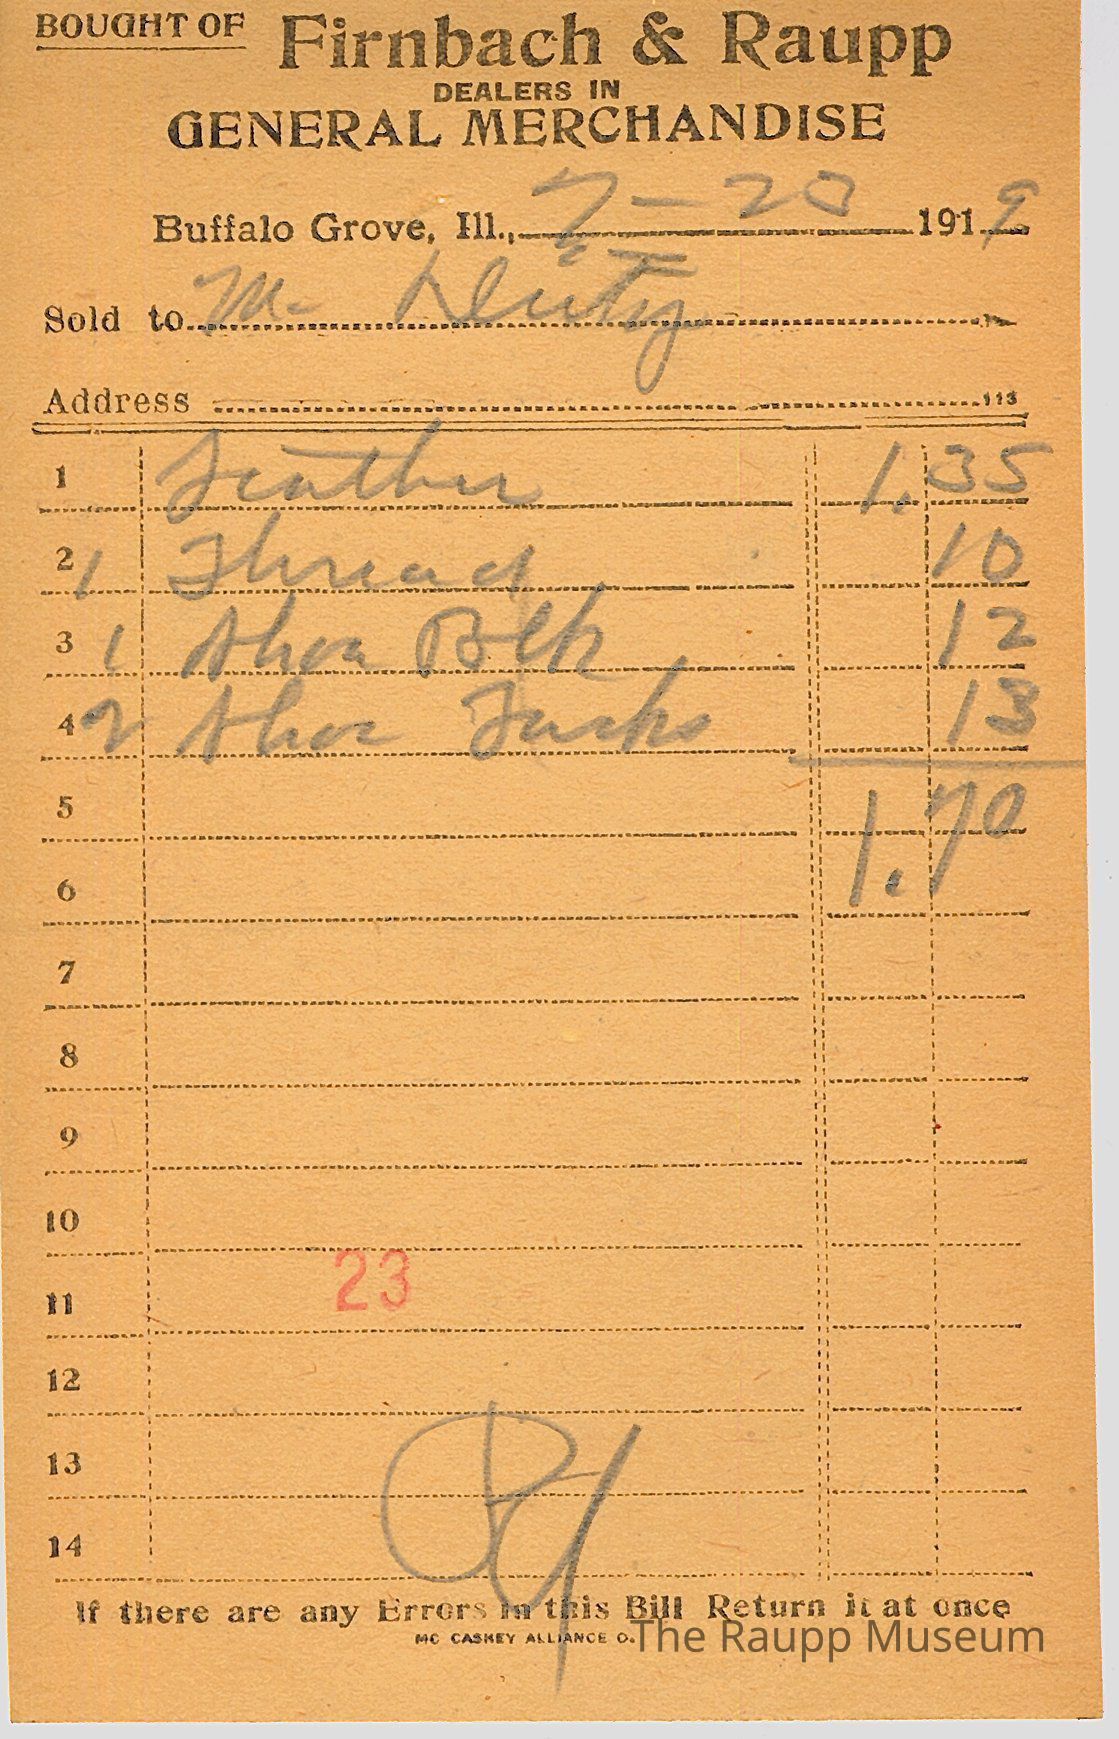 BOUGHT OF Firnbach & Raupp
DEALERS IN
GENERAL MERCHANDISE
Buffalo Grove, Ill., 7-20 1919
Sold to Mr
Address 113
1 Leather 1.35
2 1 Thread 10
3 1 Shoe Blk 12
4 2 Shoe 13
5 1.70
6
7
8
9
10
23
11
12
13
14
If there are any Errors in this Bill Return it at once
MC CASKEY ALLIANCE O.
The Raupp Museum